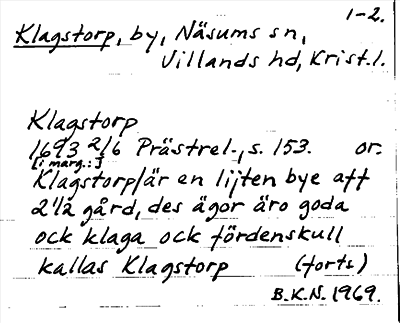 1-2.
Klagstorp, by, Näsums sn,
Villands hd, Krist.l.
Klagstorp
1693 2/6 Prästrel., s. 153. or.
[i marg.:]
Klagstorp/är en lijten bye aff
2 1/2 gård, des ägor äro goda
ock klaga ock fördenskull
kallas Klagstorp (forts)
B.K.N. 1969.